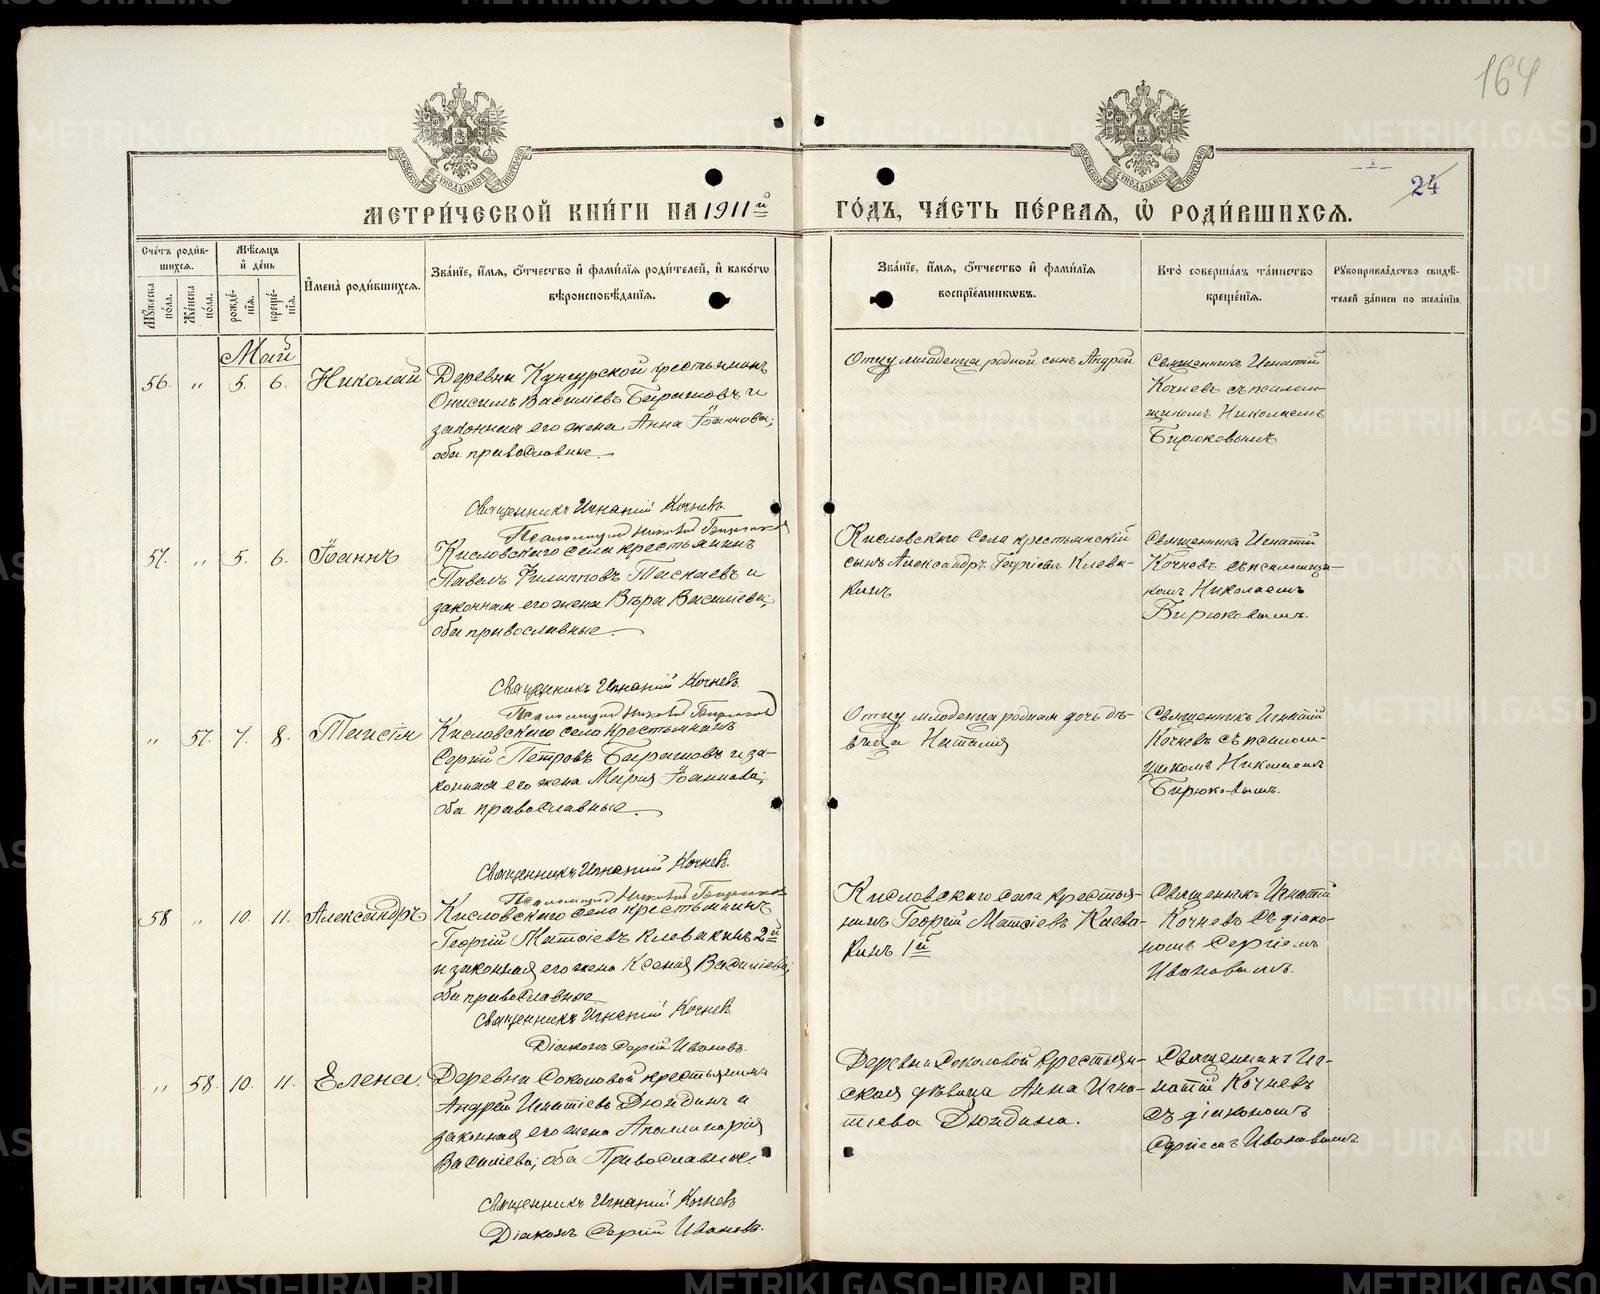 164
24
МОСКОВСКОЙ СѴНОДАЛЬНОЙ ТИПОГРАФІИ
МОСКОВСКОЙ СѴНОДАЛЬНОЙ ТИПОГРАФІИ
МЕТРИ́ЧЕСКОЙ КНИ́ГИ НА 1911й
ГО́ДЪ, ЧА́СТЬ ПЕ́РВАЯ, Ѽ РОДИ́ВШИХСЯ.
Сче́тъ роди́в-
шихся.
Мѣ́сяцъ
и҆ де́нь
Мꙋ́жеска
по́ла.
Же́нска
по́ла.
рожде́-
нїя.
креще́-
нїя.
И҆мена̀ роди́вшихся.
Зва́нїе, и҆́мя, ѻ҆́тчество и҆ фами́лїя роди́телей, и҆ како́гѡ
вѣроисповѣ́данїя.
Зва́нїе, и҆́мя, ѻ҆́тчество и҆ фами́лїя
воспрїе́мникѡвъ.
Кто̀ соверша́лъ та́инство
креще́нїя.
Рꙋкоприкла́дство свидѣ́-
телей за́писи по жела́нїю.
Май
56. „ 5. 6. Николай
Деревни Кунгурской крестьянинъ
Онисимъ Василіевъ Бараговъ и
законная его жена Анна Іоаннова;
оба православные.
Священникъ Игнатій Кочневъ
Псаломщикъ Николай Бирюковъ
Отцу младенца родной сынъ Андрей
Священникъ Игнатій
Кочневъ съ псалом-
щикомъ Николаемъ
Бирюковымъ
57. „ 5. 6. Іоаннъ
Кисловскаго села крестьянинъ
Павелъ Филипповъ Таскаевъ и
законная его жена Вѣра Василіева;
оба православные.
Священникъ Игнатій Кочневъ.
Псаломщикъ Николай Бирюковъ
Кисловскаго села крестьянскій
сынъ Александръ Георгіевъ Клева-
кинъ
Священникъ Игнатій
Кочневъ съ псаломщи-
комъ Николаемъ
Бирюковымъ.
„ 57. 7. 8. Таисія
Кисловскаго села крестьянинъ
Сергій Петровъ Бараговъ и за-
конная его жена Марія Іоаннова;
оба православные.
Священникъ Игнатій Кочневъ.
Псаломщикъ Николай Бирюковъ
Отцу младенца родная дочь дѣ-
вица Наталія
Священникъ Игнатій
Кочневъ съ псалом-
щикомъ Николаемъ
Бирюковымъ.
58 „ 10. 11. Александръ
Кисловскаго села крестьянинъ
Георгій Матѳіевъ Клевакинъ 2й
и законная его жена Ксенія Василіева;
оба православные
Священникъ Игнатій Кочневъ
Діаконъ Сергій Ивановъ.
Кисловскаго села крестья-
нинъ Георгій Матѳіевъ Клева-
кинъ 1й
Священникъ Игнатій
Кочневъ съ діако-
номъ Сергіемъ
Ивановымъ.
„ 58. 10. 11. Елена.
Деревни Соколовой крестьянинъ
Андрей Игнатіевъ Дюндинъ и
законная его жена Аполлинарія
Василіева; оба Православные.
Священникъ Игнатій Кочневъ
Діаконъ Сергій Ивановъ.
Деревни Соколовой крестьян-
ская дѣвица Анна Игна-
тіева Дюндина.
Священникъ Иг-
натій Кочневъ
съ діакономъ
Сергіемъ Ивановымъ
METRIKI.GASO-URAL.RU